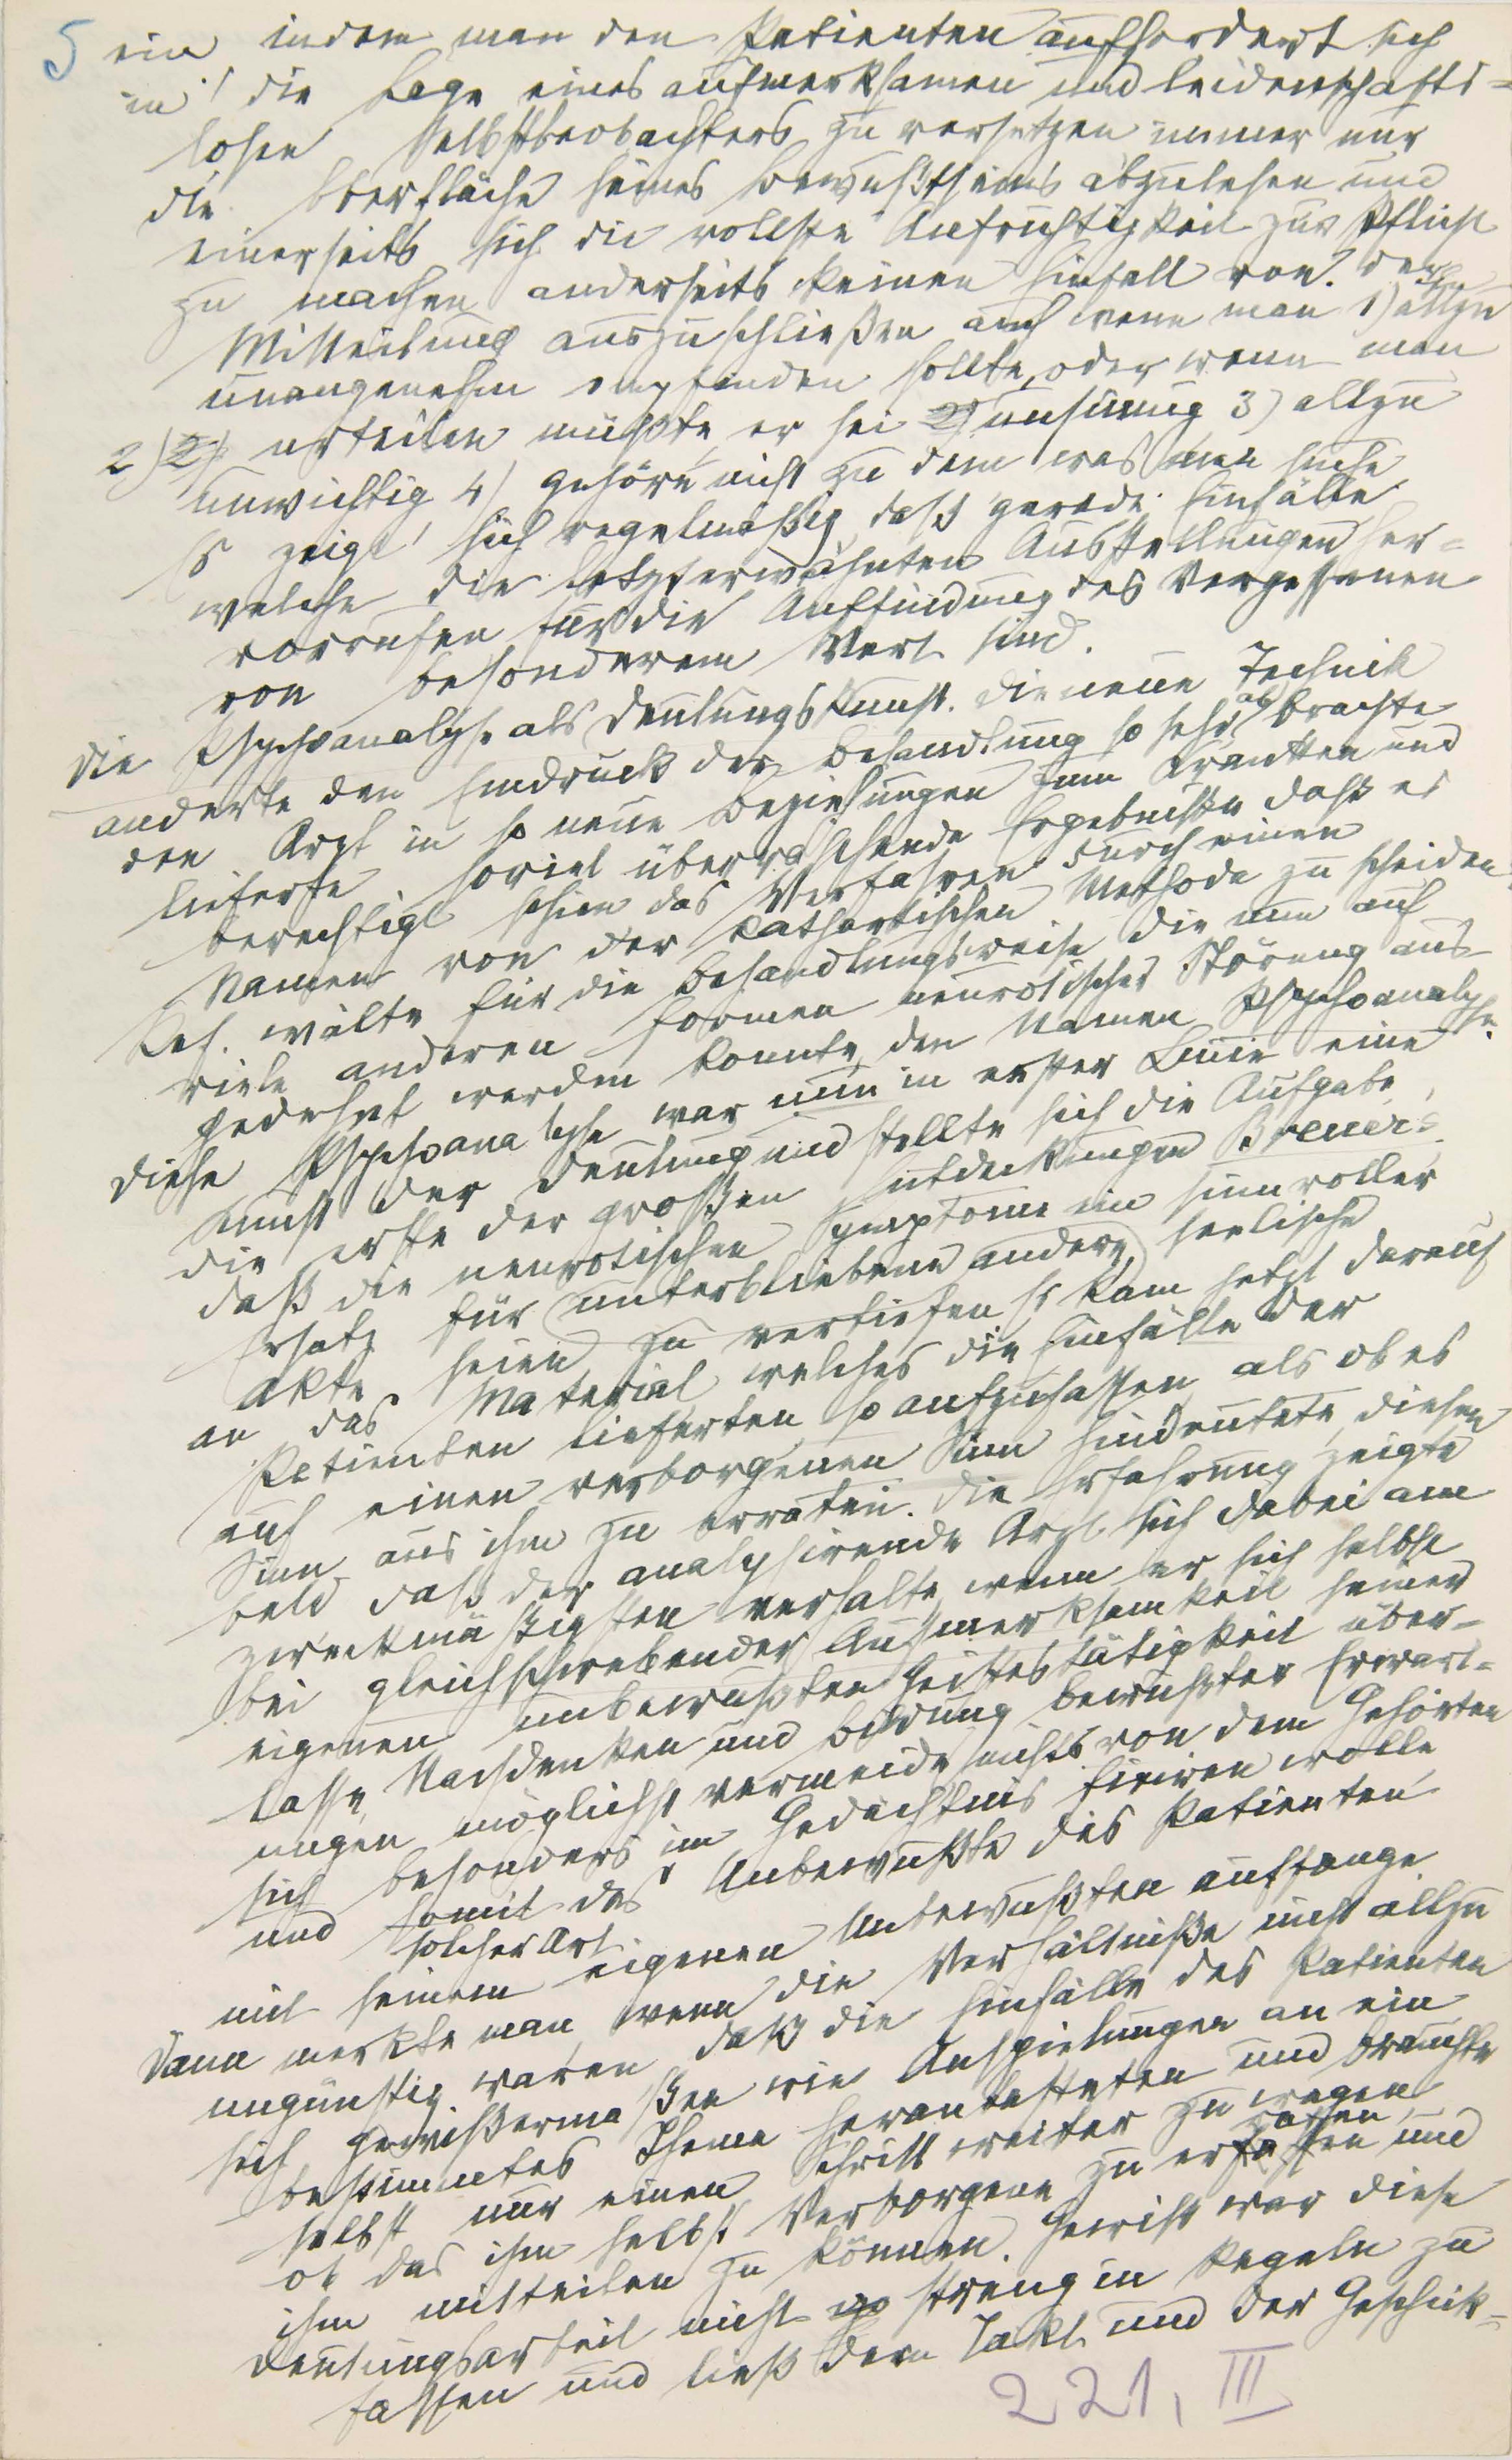 5 ein indem man den Patienten auffordert sich
in die Lage eines aufmerksamen und leidenschafts=
losen Selbstbeobachters zu versetzen immer nur
die Oberfläche seines Bewußtseins abzulesen und
einerseits sich die vollste Aufrichtigkeit zur Pflicht
zu machen anderseits keinen Einfall von der
Mitteilung auszuschließen auch wenn man 1) allzu
unangenehm empfinden sollte, oder wenn man
2) urteilen müßte, er sei unsinnig 3) allzu
unwichtig 4) gehöre nicht zu dem was man suche
Es zeigt sich regelmäßig, daß gerade Einfälle
welche die letzterwähnten Ausstellungen her=
vorrufen für die Auffindung des Vergessenen
von besonderem Wert sind.
Die Psychoanalyse als Deutungskunst. Die neue Technik
änderte den Eindruck der Behandlung so sehr ab brachte
den Arzt in so neue Beziehungen zum Kranken und
lieferte soviel überraschende Ergebnisse daß es
berechtigt schien das Verfahren durch einen
Namen von der kathartischen Methode zu scheiden
Ref. wälte für die Behandlungsweise, die nun auf
viele anderen Formen neurotischer Störung aus-
gedehnt werden konnte, den Namen Psychoanalyse.
Diese Psychoanalyse war nun in erster Linie eine
Kunst der Deutung und stellte sich die Aufgabe,
die erste der großen Entdeckungen Breuer's
daß die neurotischen Symptome ein sinnvoller
Ersatz für unterbliebene andere seelische
Akte seien, zu vertiefen Es kam jetzt darauf
an das Material, welches die Einfälle der
Patienten lieferten, so aufzufassen als ob es
auf einen verborgenen Sinn hindeutete, diesen
Sinn aus ihm zu erraten. Die Erfahrung zeigte
bald daß der analysirende Arzt sich dabei am
zweckmäßigsten verhalte, wenn er sich selbst
bei gleichschwebender Aufmerksamkeit seiner
eigenen unbewußten Geistestätigkeit über-
lasse, Nachdenken und Bildung bewußter Erwart=
ungen möglichst vermeide, nichts von dem Gehörten
sich besonders im Gedächtnis fixiren wolle
und somit das Unbewußte des Patienten
solcher Art
mit seinem eigenen Unbewußten auffange
Dann merkte man, wenn die Verhältniße nicht allzu
ungünstig waren daß die Einfälle des Patienten
sich gewißermaßen wie Anspielungen an ein
bestimmtes Thema herantasteten und brauchte
selbst nur einen Schritt weiter zu wagen
raten
ob das ihm selbst Verborgene zu erfassen und
ihm mitteilen zu können. Gewiß war diese
Deutungsarbeit nicht so streng in Regeln zu
fassen und ließ dem Takt und der Geschick=
221, III